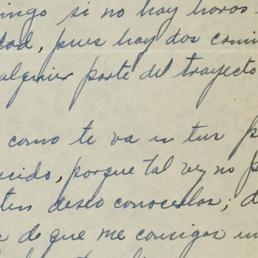 ingo si no hay horos
dad, pues hay dos cami
alquier parte del trayecto
como te va en tus p
cido, porque tal vez no p
ten deseo conocerlos; d
de que me consigas un